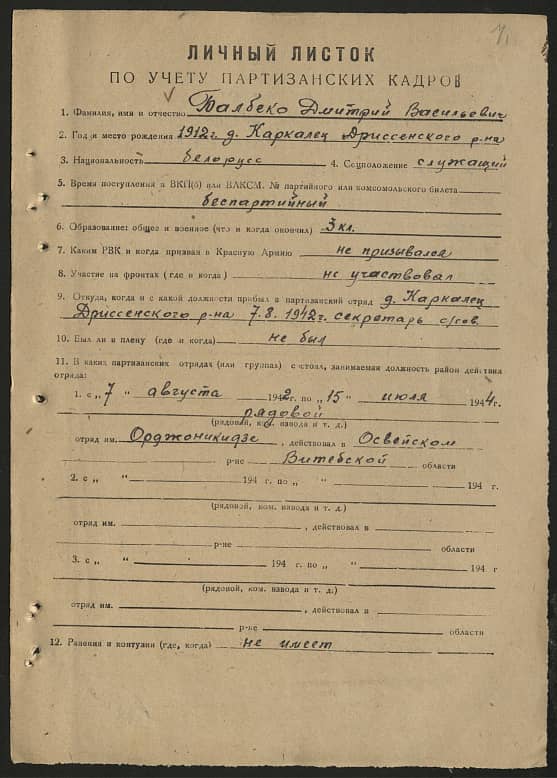 ЛИЧНЫЙ ЛИСТОК
ПО УЧЕТУ ПАРТИЗАНСКИХ КАДРОВ
1. Фамилия, имя и отчество Балбеко Дмитрий Васильевич
2. Год и место рождения 1912г. д. Каркалец Дриссенского р-на
3. Национальность белорусс 4. Соцположение служащий
5. Время поступления в ВКП(б) или ВЛКСМ. № партийного или комсомольского билета
беспартийный
6. Образование: общее и военное (что и когда окончил) 3 кл.
7. Каким РВК и когда призван в Красную Армию не призывался
8. Участие на фронтах (где и когда) не участвовал
9. Откуда, когда и с какой должности прибыл в партизанский отряд д. Каркалец
Дриссенского р-на 7.8.1942г. секретарь с/сов.
10. Был ли в плену (где и когда) не был
11. В каких партизанских отрядах (или группах) состоял, занимаемая должность район действия
отряда:
1. с „ 7 " августа 1942 г. по „ 15 " июля 1944 г.
рядовой
(рядовой, ком. взвода и т. д.)
отряд им. Орджоникидзе, действовал в Освейском
р-не Витебской области
2. с „ " 194 г. по „ " 194 г.
(рядовой, ком. взвода и т. д.)
отряд им. , действовал в
р-не области
3. с „ " 194 г. по „ " 194 г
(рядовой, ком. взвода и т. д.)
отряд им. , действовал в
р-не области
12. Ранения и контузии (где, когда) не имеет